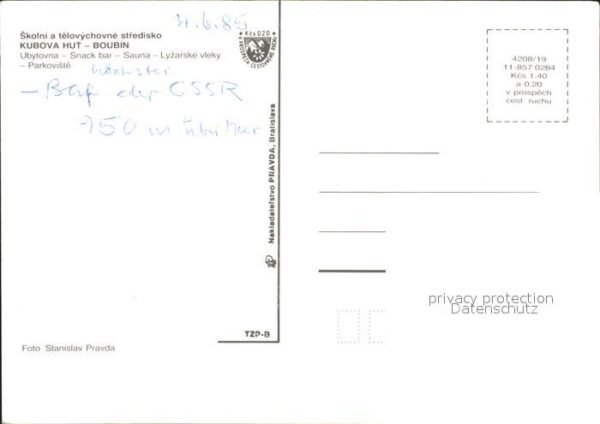 4.6.85
Školní a tělovýchovné středisko
KUBOVA HUŤ – BOUBÍN
Ubytovna – Snack bar – Sauna – Lyžařské vleky
– Parkoviště
höchster
– Bhf der ČSSR
950 m über Meer
Kčs 0,20
V PROSPĚCH CESTOVNÍHO RUCHU
4208/19
11-857 0284
Kčs 1.40
a 0.20
v prospěch
cest. ruchu
Nakladateľstvo PRAVDA, Bratislava
TZP-B
privacy protection
Datenschutz
Foto Stanislav Pravda